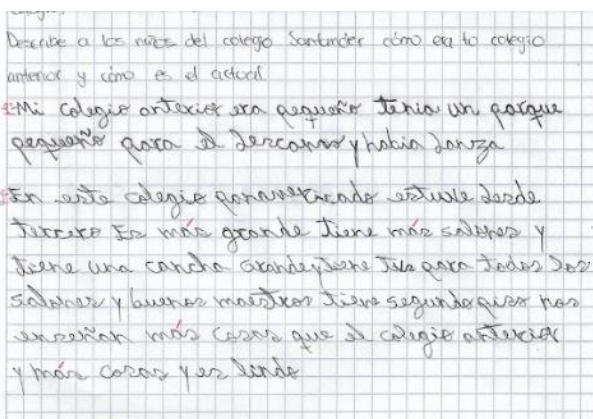 Describe a los niños del colegio Santander cómo era tu colegio
anterior y cómo es el actual.
Mi colegio anterior era pequeño tenia un parque
pequeño para el descanso y habia danza
En este colegio estudie desde
terrero Es más grande tiene más salones y
tiene una cancha grande, tiene Tv para todos los
salones y buenos maestros tiene segundo piso nos
enseñan más cosas que el colegio anterior
y más cosas y es lindo